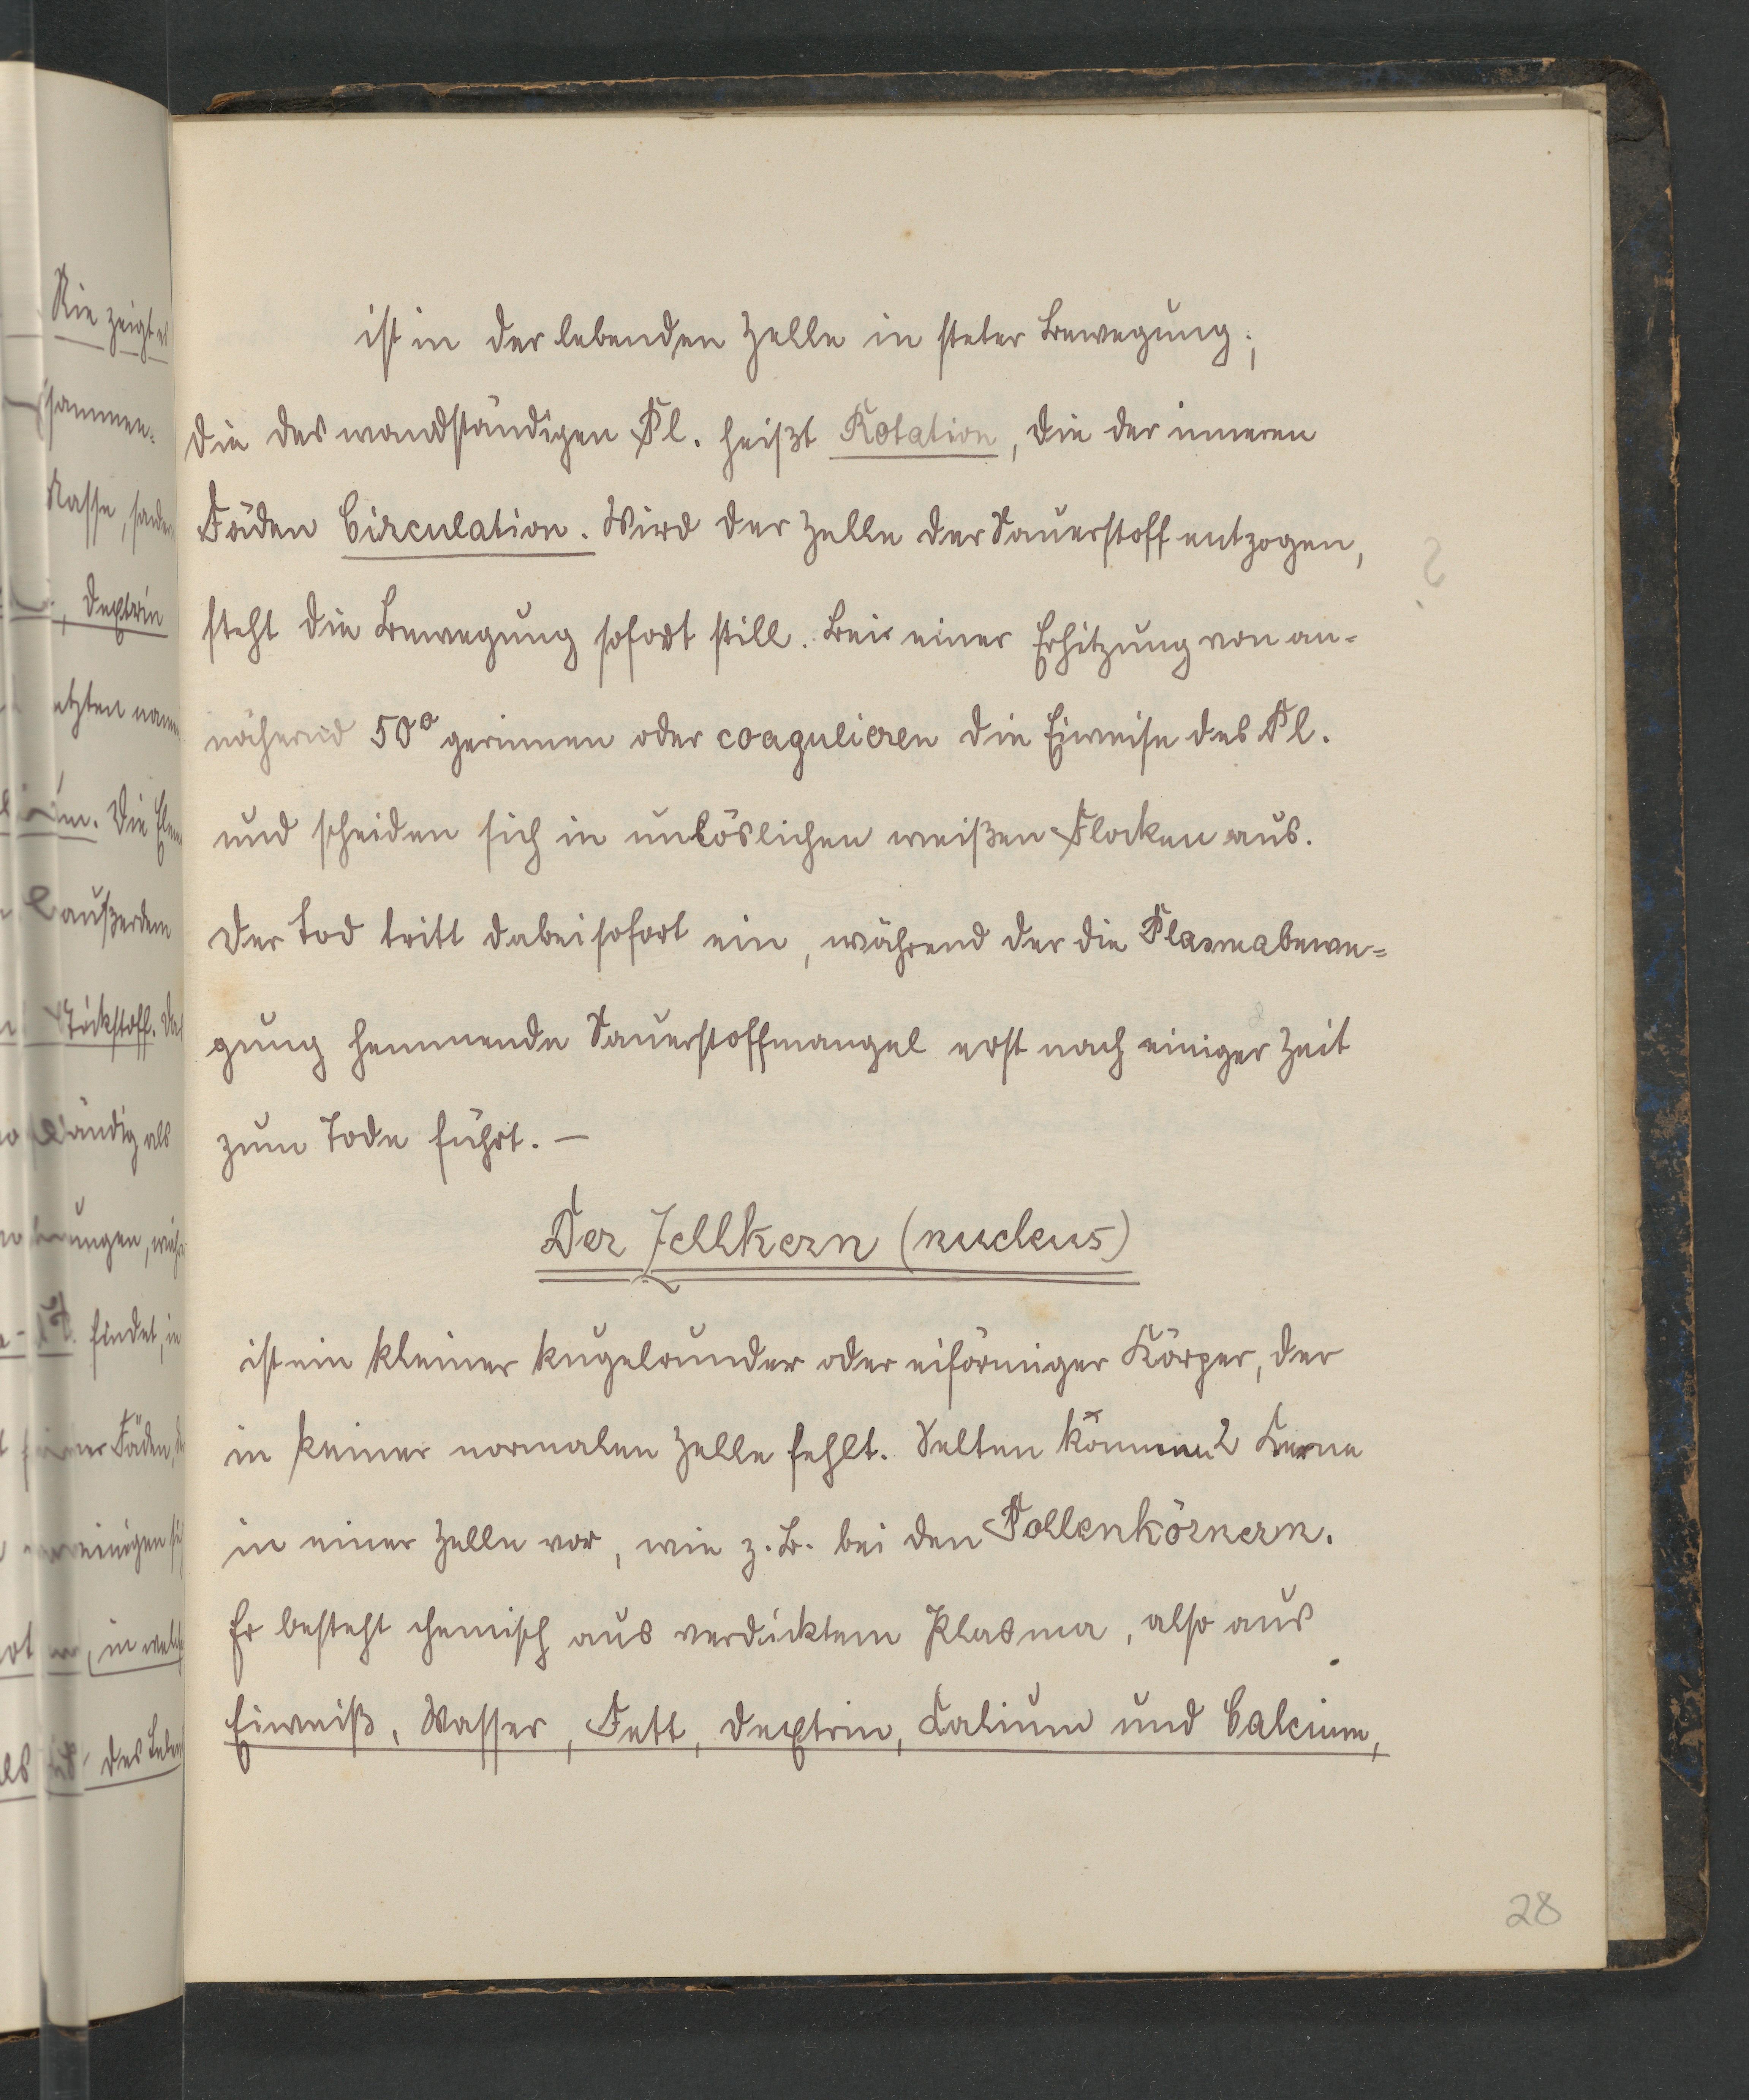 ist in der lebenden Zelle in steter Bewegung;
die des wandständigen Pl. heißt Rotation, die der inneren
Fäden Circulation. Wird der Zelle der Sauerstoff entzogen,
steht die Bewegung sofort still. Bei einer Erhitzung von an-
nähernd 50° gerinnen oder coagulieren die Eiweise des Pl.
und scheiden sich in unlöslichen weißen Flocken aus.
Der Tod tritt dabei sofort ein, während der die Plasmabewe-
gung hemmende Sauerstoffmangel erst nach einiger Zeit
zum Tode führt. —
Der Zellkern (nucleus)
ist ein kleiner kugelrunder oder eiförmiger Körper, der
in keiner normalen Zelle fehlt. Selten kommen 2 Kerne
in einer Zelle vor, wie z. B. bei den Pollenkörnern.
Er besteht chemisch aus verdicktem Plasma, also aus
Eiweiß, Wasser, Fett, Dextrin, Kalium und Calcium,
28